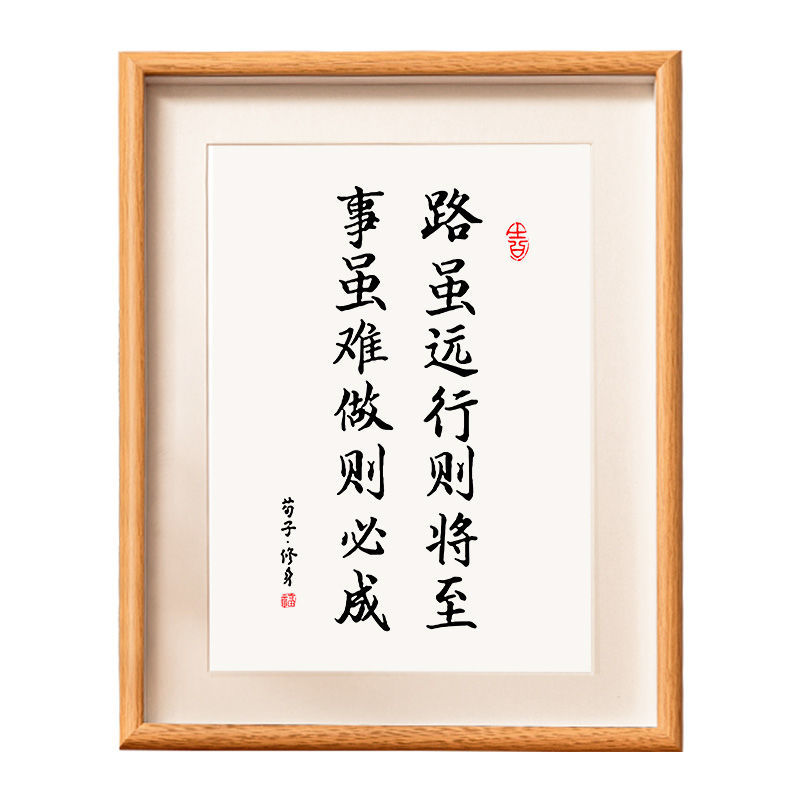 路虽远行则将至
事虽难做则必成
荀子·修身
福